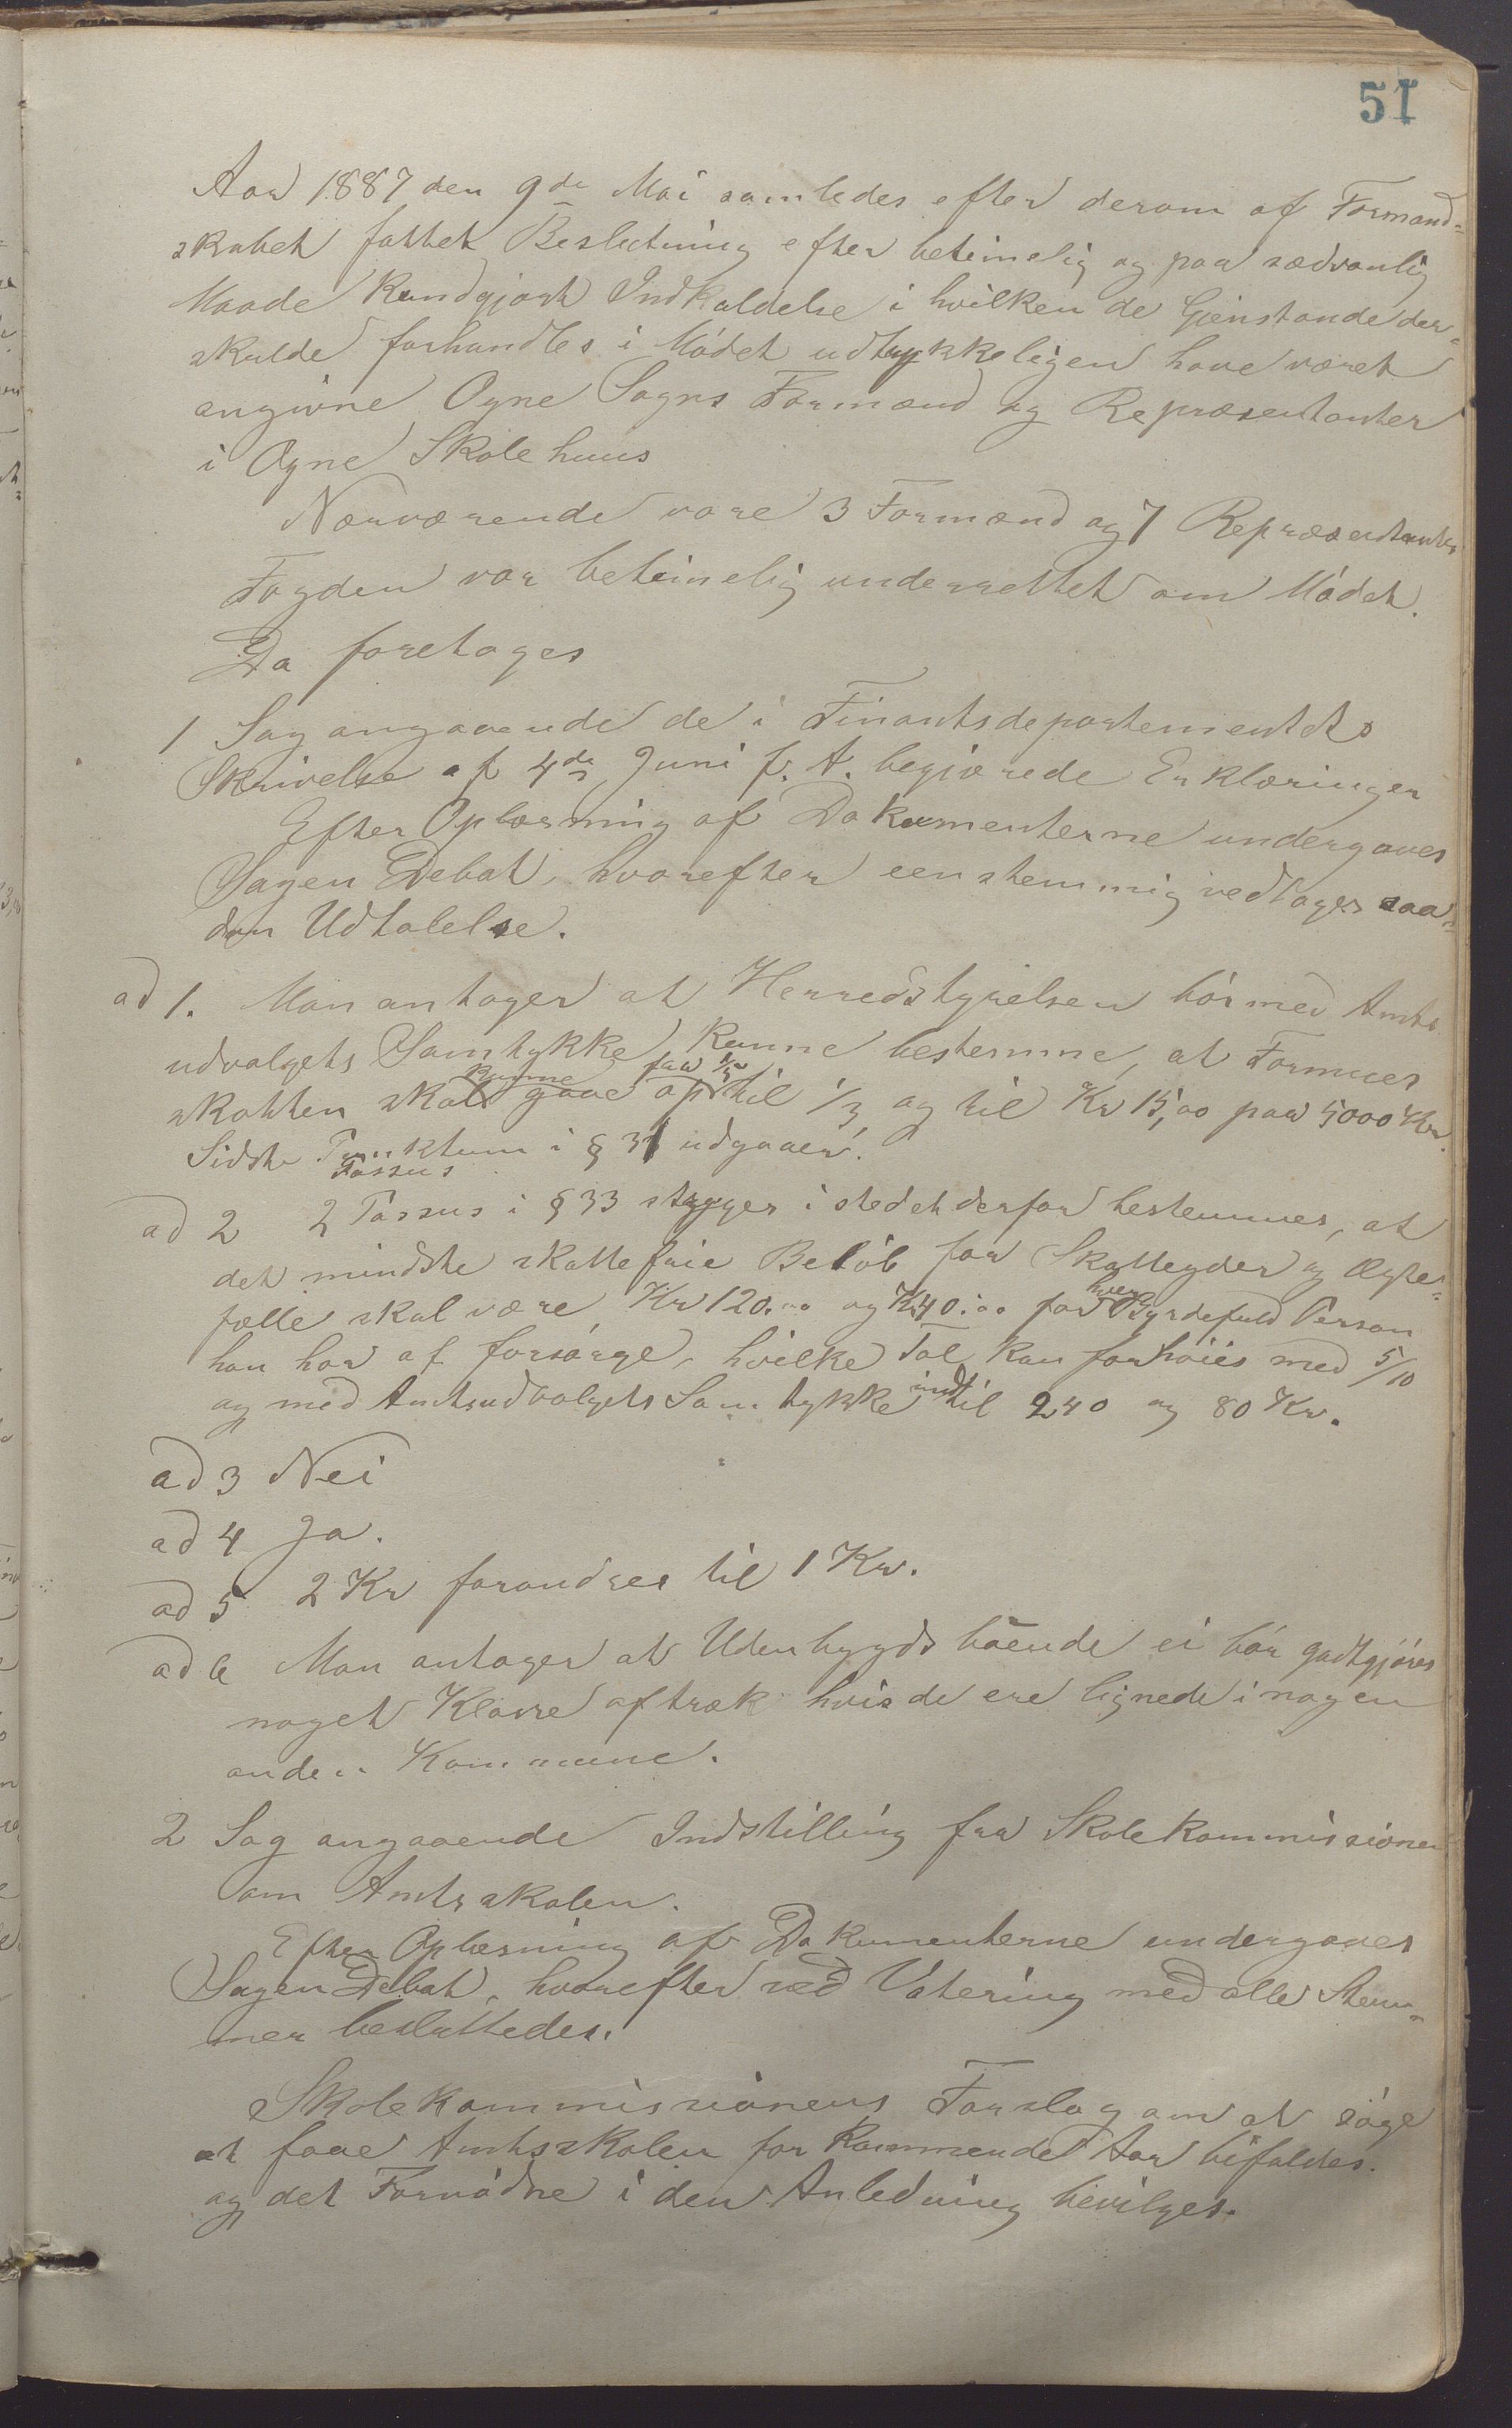 51
Aar 1887 den 9de Mai samledes efter derom af Formand=
skabet fattet Beslutning efter betimelig og paa sædvanlig
Maade Kundgjort Indkaldelse i hvilken de Gjenstande der
skulde forhandles i Mödet udtrykkeligen have været
angivne Ogne Sogns Formænd og Repræsentanter
i Ogne Skolehuus
Nærværende vare 3 Formænd og 7 Repræsentanter
Fogden var betimelig underrettet om Mödet.
Da foretoges
1 Sag angaaende de i Finantsdepartementets
Skrivelse af 4de Juni f. A. begjærede Erklæringer
Efter Oplæsning af Dokumenterne undergaves
Sagen Debat, hvorefter eenstemmig vedtoges saa=
dan Udtalelse.
ad 1. Man antager at Herredstyrelsen bör med Amts
udvalgets Samtykke kunne bestemme, at Formues
kunne fra 1/5
skatten skal gaae op til 1/3 og til Kr 15,00 paa 5000 Kr.
Sidste Punktum i § 31 udgaaer.
Passus
ad 2 2 Passus i § 33 stryges i stedet derfor bestemmes, at
det mindste skattefrie Belöb for Skatteyder og Ægte=
fælle skal være Kr 120.00 og Kr 40.00 for hver Byrdefuld Person
han har at forsörge, hvilke Tal kan forhöies med 5/10
og med Amtsudvalgets Samtykke indtil 240 og 80 Kr.
ad 3 Nei
ad 4 Ja.
ad 5 2 Kr forandres til 1 Kr.
ad 6 Man antager at Udenbygds böende ei bör godtgjöres
noget Klasse aftræk hvis de ere lignede i nogen
anden Kommune.
2 Sag angaaende Indstilling fra Skolekommissionen
om Amtsskolen.
Efter Oplæsning af Dokumenterne undergaves
Sagen Debat, hvorefter ved Votering med alle Stem=
mer besluttedes.
Skolekommissionens Forslag om at söge
at faae Amtsskolen for Kommende Aar bifaldes.
og det Fornödne i den Anledning bevilges.